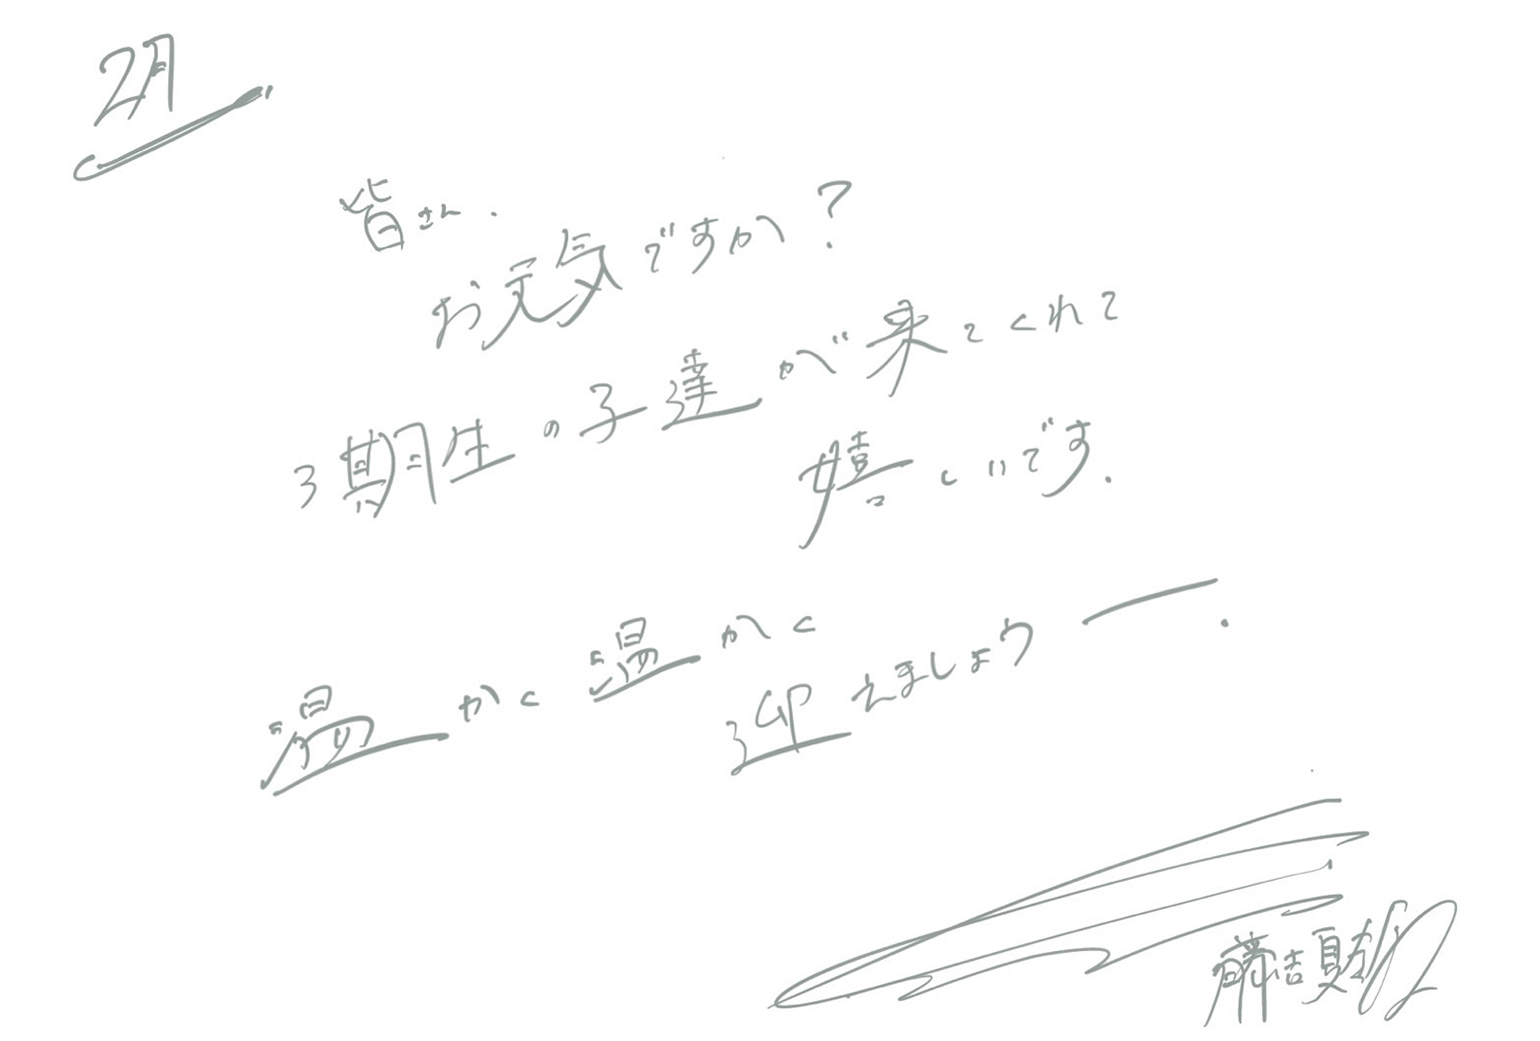 2月
皆さん.
お元気ですか?
3期生の子達が来てくれて
嬉しいです.
温かく温かく
迎えましょうー.
藤吉夏鈴